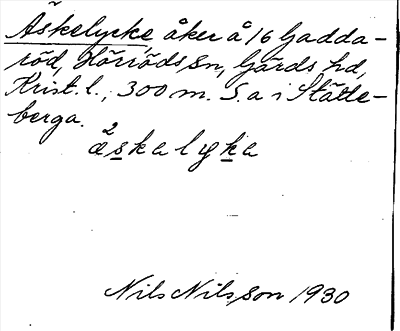 Äskelycke, åker å 1/6 Gadda-
röd, Hörröds sn, Gärds hd,
Krist. l., 300 m. S. a i Stätte-
berga.
äskalyka
Nils Nilsson 1930